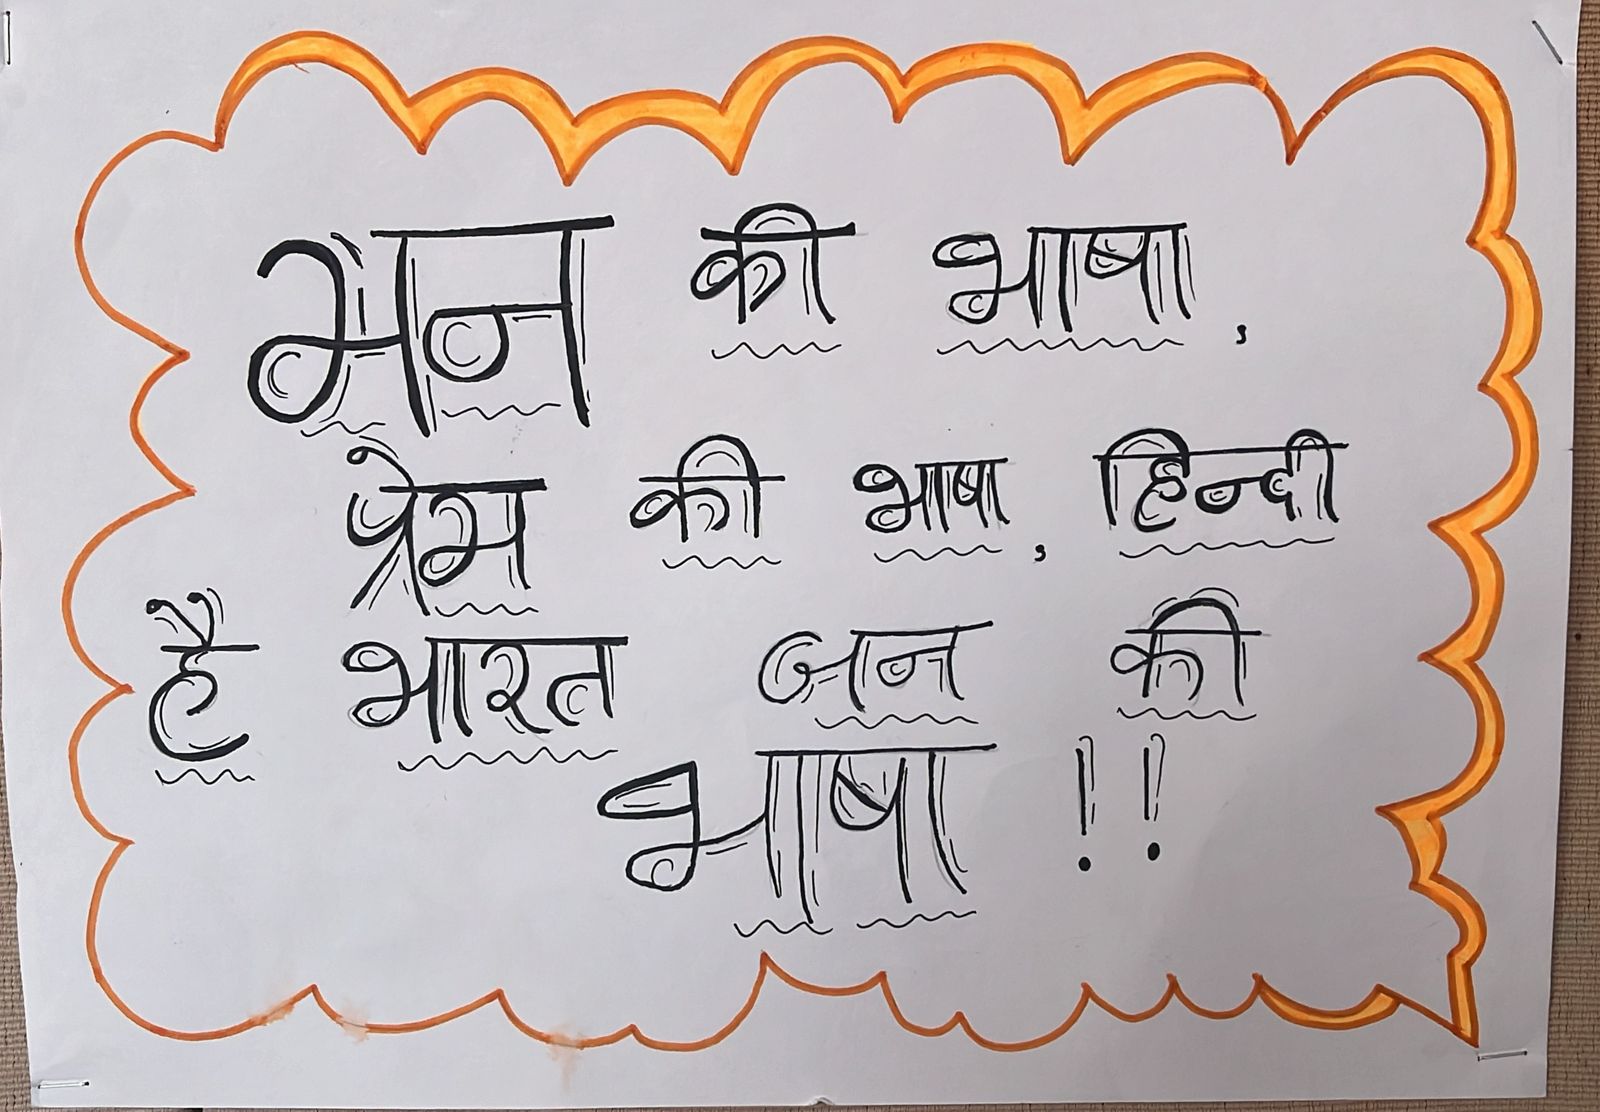 मन की भाषा,
प्रेम की भाषा, हिन्दी
है भारत जन की
भाषा !!